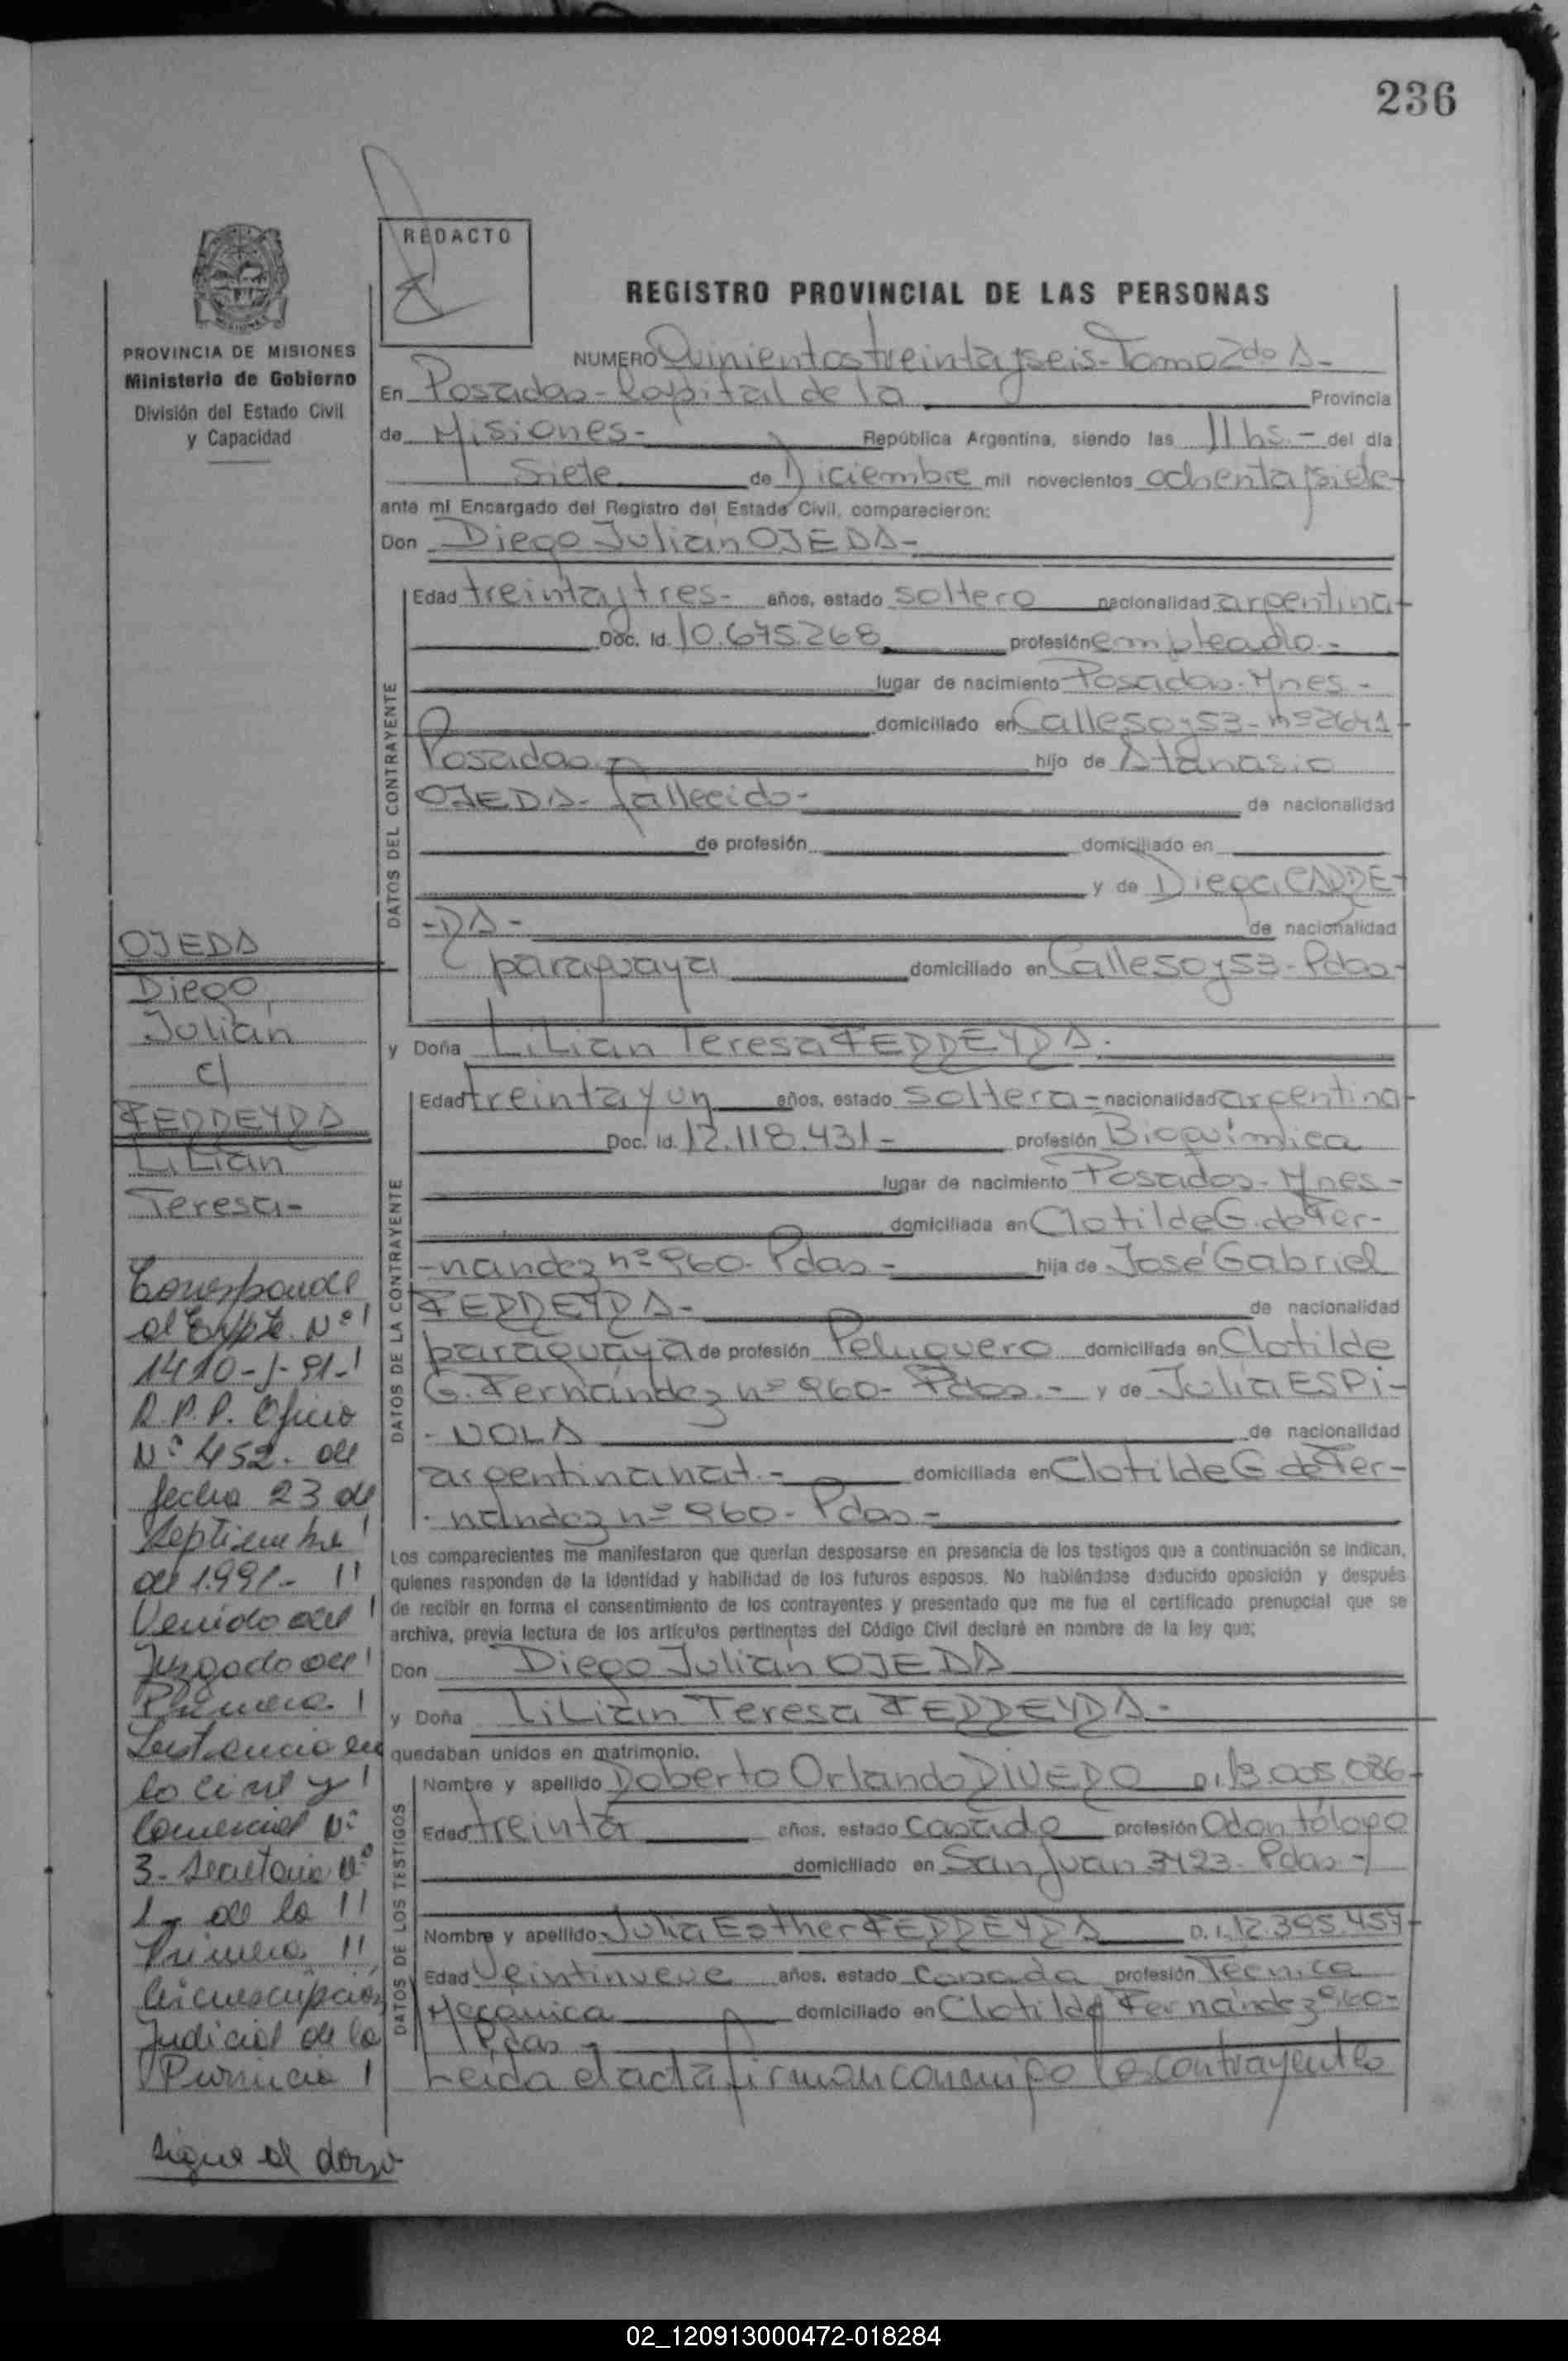 236
PROVINCIA DE MISIONES
Ministerio de Gobierno
División del Estado Civil
y Capacidad
OJEDA
Diego
Julián
c/
FERREYRA
Lilian
Teresa-
Corresponde
al Expte. Nº
1410-J-91-
R.P.P. Oficio
Nº 452. del
fecha 23 de
Septiembre
de 1.991-
Venido del
Juzgado de
Primera
Instancia en
lo civil y
Comercial Nº
3- Secretaria Nº
1- de la
Primera
Circunscripción
Judicial de la
Provincia
Sigue al dorso
REDACTO
REGISTRO PROVINCIAL DE LAS PERSONAS
NUMERO Quinientos treinta y seis- Tomo 2do A-
En Posadas- Capital de la Provincia
de Misiones- República Argentina, siendo las 11 hs.- del día
Siete de Diciembre mil novecientos ochenta y siete-
ante mí Encargado del Registro del Estado Civil, comparecieron:
Don Diego Julián OJEDA-
DATOS DEL CONTRAYENTE
Edad treinta y tres- años, estado soltero nacionalidad argentina-
Doc. Id. 10.675.268 profesión empleado.-
lugar de nacimiento Posadas- Mnes-
domiciliado en Calle 50 y 53- nº 2641-
Posadas hijo de Atanasio
OJEDA- fallecido- de nacionalidad
de profesión domiciliado en
y de Diega CARRE-
-RA- de nacionalidad
paraguaya domiciliado en Calle 50 y 53- Pdas-
y Doña Lilian Teresa FERREYRA.
DATOS DE LA CONTRAYENTE
Edad treinta y un años, estado soltera- nacionalidad argentina-
Doc. Id. 12.118.431- profesión Bioquímica
lugar de nacimiento Posadas- Mnes-
domiciliada en Clotilde G. de Fer-
-nandez nº 960- Pdas- hija de José Gabriel
FERREYRA- de nacionalidad
paraguaya de profesión Peluquero domiciliada en Clotilde
G. Fernández nº 960- Pdas.- y de Julia ESPI-
-NOLA de nacionalidad
argentina nat.- domiciliada en Clotilde G. de Fer-
-nandez nº 960- Pdas-
Los comparecientes me manifestaron que querían desposarse en presencia de los testigos que a continuación se indican,
quienes responden de la identidad y habilidad de los futuros esposos. No habiéndose deducido oposición y después
de recibir en forma el consentimiento de los contrayentes y presentado que me fue el certificado prenupcial que se
archiva, previa lectura de los artículos pertinentes del Código Civil declaré en nombre de la ley que;
Don Diego Julián OJEDA
y Doña Lilian Teresa FERREYRA-
quedaban unidos en matrimonio.
DATOS DE LOS TESTIGOS
Nombre y apellido Roberto Orlando RIVERO D.I. 13.005.086-
Edad treinta años, estado casado profesión Odontólogo
domiciliado en San Juan 3423- Pdas-
Nombre y apellido Julia Esther FERREYRA D.I. 12.395.457-
Edad Veintinueve años, estado casada profesión Técnica
Mecánica domiciliado en Clotilde Fernández 960-
Pdas-
Leída el acta firman conmigo los contrayentes
02_120913000472-018284